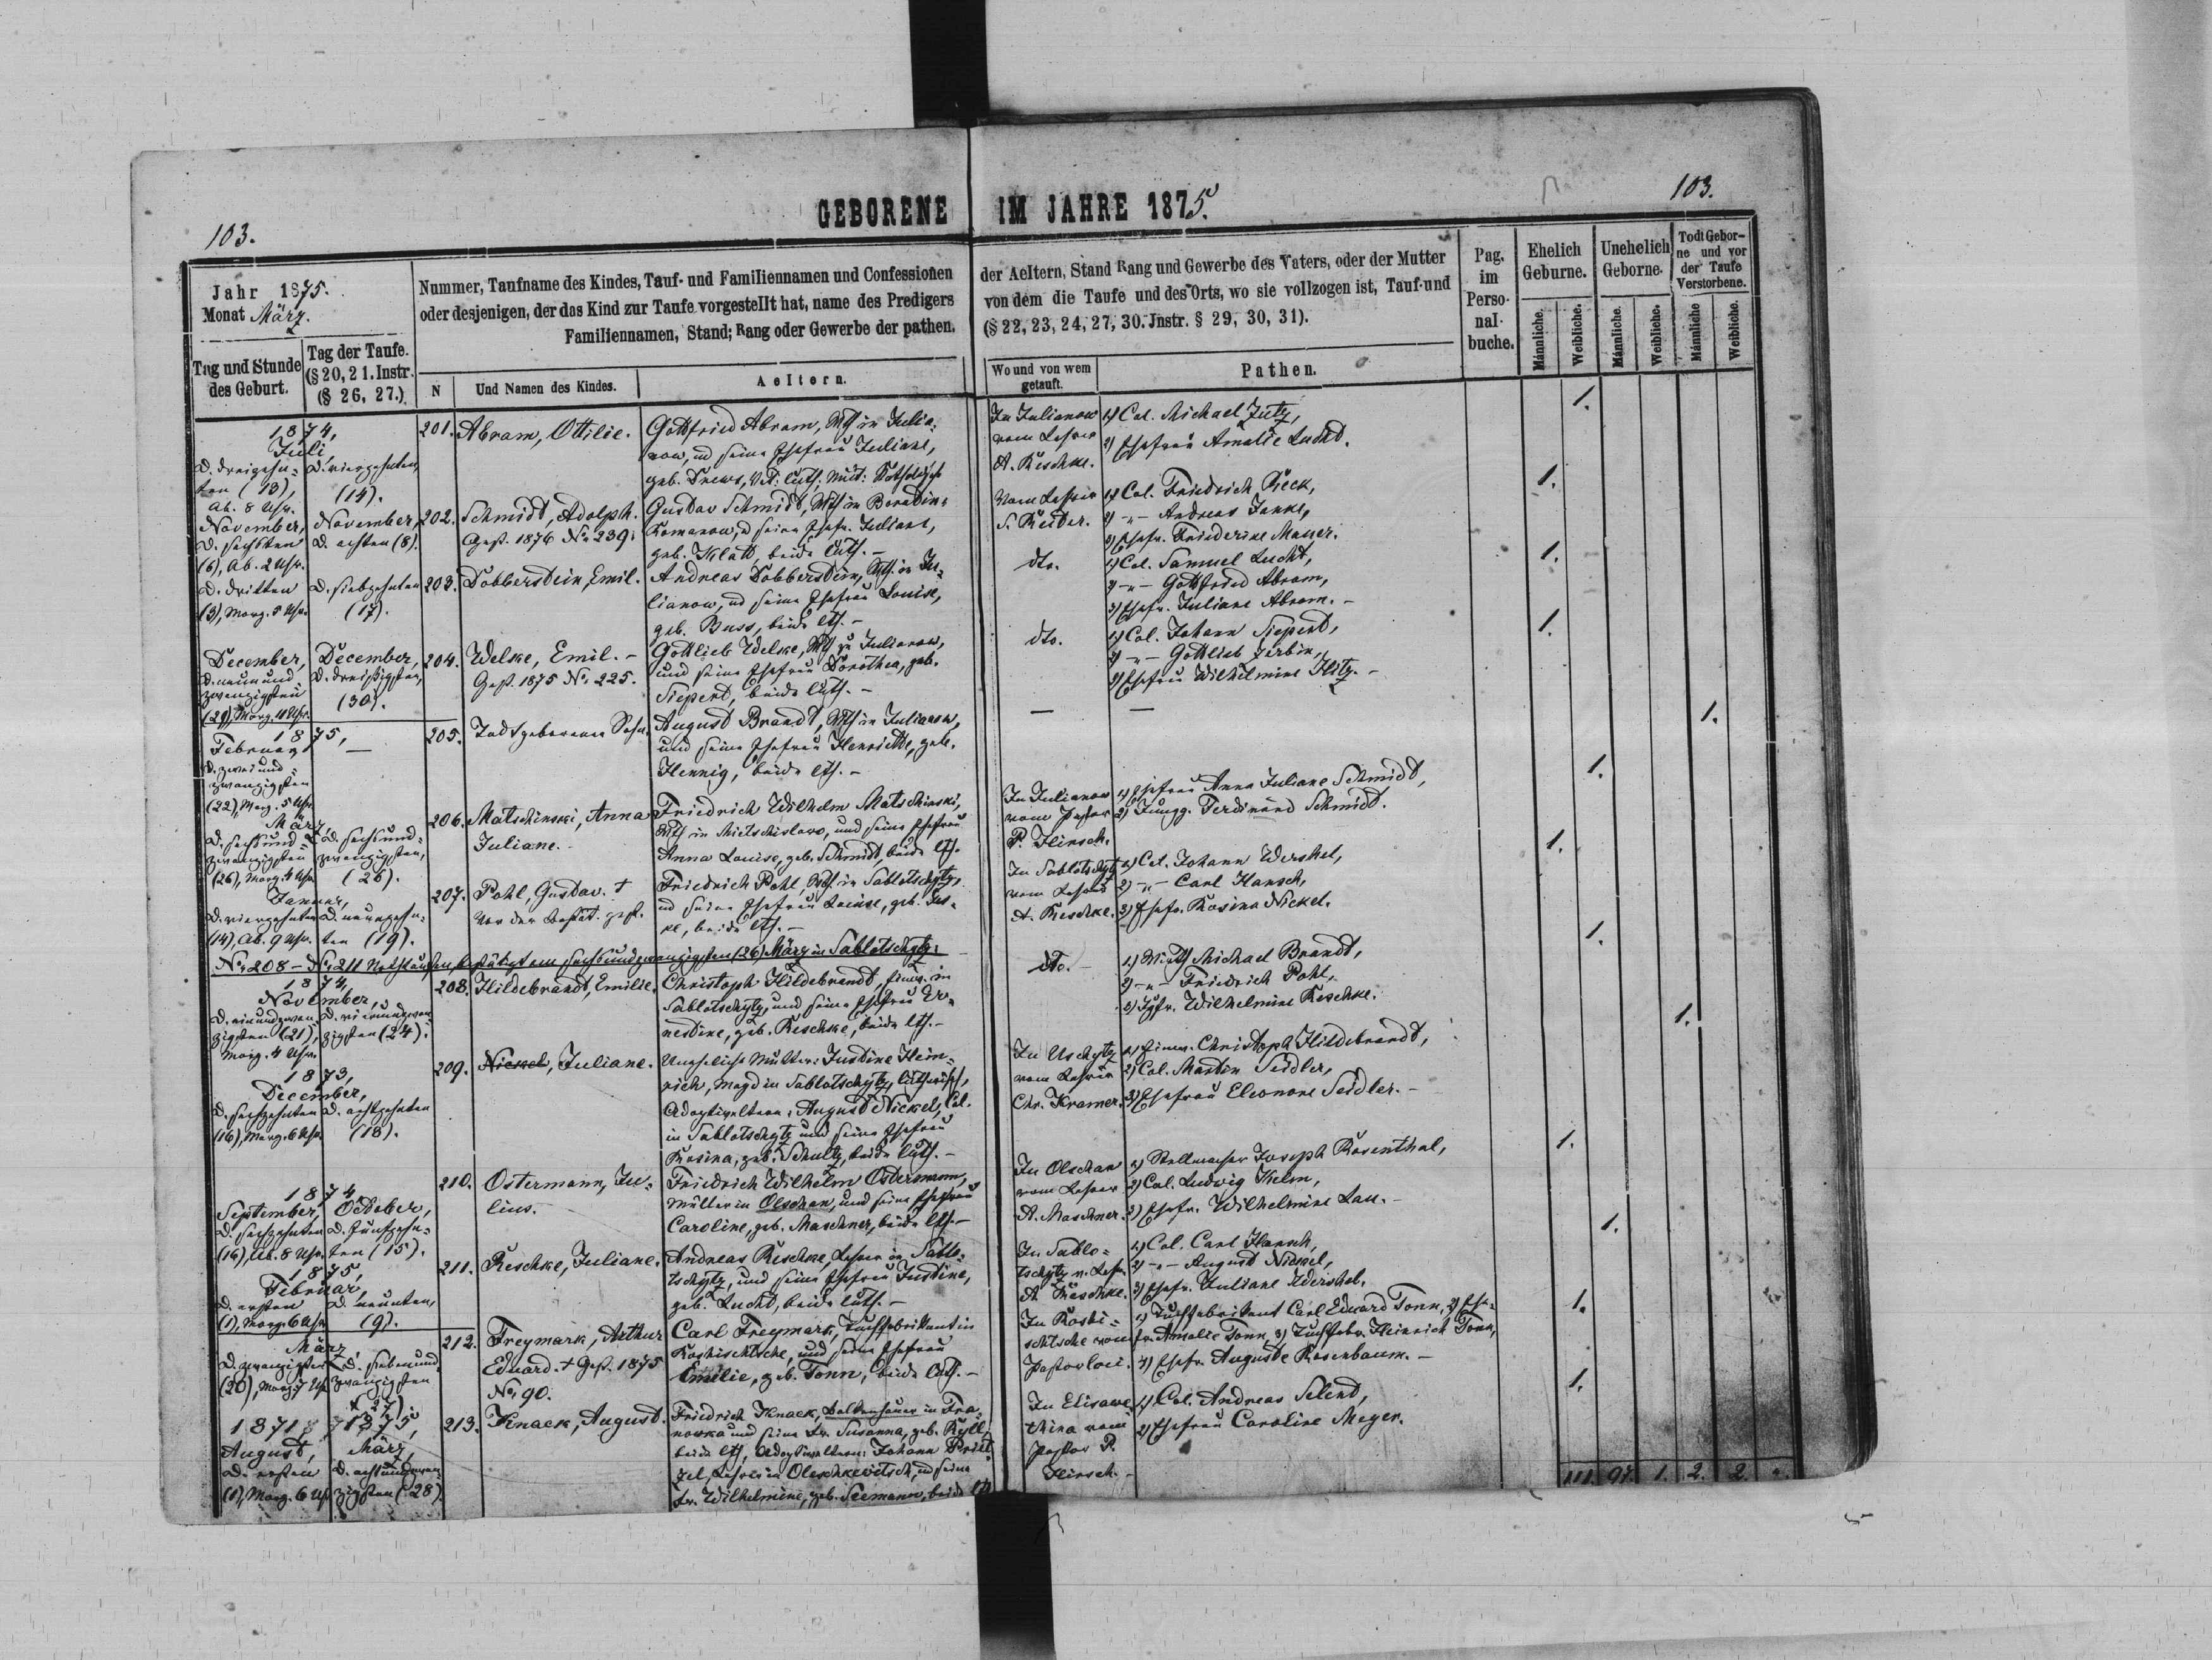 GEBORENE IM JAHRE 1875.
103.
103.
Jahr 1875.
Monat März.
Tag und Stunde des Geburt.
Tag der Taufe.
(§ 20, 21. Instr.
(§ 26, 27.)
Nummer, Taufname des Kindes, Tauf- und Familiennamen und Confessionen
oder desjenigen, der das Kind zur Taufe vorgestellt hat, name des Predigers
Familiennamen, Stand; Rang oder Gewerbe der pathen.
N
Und Namen des Kindes.
Aeltern.
der Aeltern, Stand Rang und Gewerbe des Vaters, oder der Mutter
von dem die Taufe und des Orts, wo sie vollzogen ist, Tauf-und
(§ 22, 23, 24, 27, 30. Jnstr. § 29, 30, 31).
Wo und von wem
getauft.
Pathen.
Pag.
im
Perso-
nal-
buche.
Ehelich
Geburne.
Unehelich
Geborne.
Todt Gebor-
ne und vor
der Taufe
Verstorbene.
Männliche.
Weibliche.
Männliche.
Weibliche.
Männliche
Weibliche.
1874,
Juli,
d. dreizehn-
ten (13),
Ab. 8 Uhr.
d. vierzehnten
(14).
201.
Abram, Ottilie.
Gottfried Abram, Wth in Julia-
now, und seine Ehefrau Juliane,
geb. Drews, Vat: luth. Mut:
In Julianow
vom Lehrer
A. Reschke.
1) Col. Michael Jutz,
2) Ehefrau Amalie Lucht.
1.
November,
d. sechsten
(6), Ab. 2 Uhr.
November,
d. achten (8).
202.
Schmidt, Adolph.
Gest. 1876 No 239.
Gustav Schmidt, Wth in Beredin-
Romanow, und seine Ehefr. Juliane,
geb. Klatt, beide luth. -
Vom Lehrer
S. Reiter.
1) Col. Friedrich Rieck,
2) -"- Andreas Janke,
3) Ehefr. Friederike Mauer.
1.
d. dritten
(3), Morg. 5 Uhr.
d. siebzehnten
(17).
203.
Dobberstein, Emil.
Andreas Dobberstein, Wth in Ju-
lianow, und seine Ehefrau Louise,
geb. Buss, beide lth. -
dto.
1) Col. Samuel Lucht,
2) -"- Gottfried Abram,
3) Ehefr. Juliane Abram. -
1.
December,
d. neunund
zwanzigsten
(29), Morg. 4 Uhr.
December,
d. dreißigsten,
(30).
204.
Welke, Emil. -
Gest. 1875 No 225.
Gottlieb Welke, Wth zu Julianow,
und seine Ehefrau Dorothea, geb.
Siepert, beide luth. -
dto.
1) Col. Johann Siepert,
2) -"- Gottlieb Zerbin,
3) Ehefrau Wilhelmine Klitz. -
1.
1875,
Februar,
d. zweiund-
zwanzigsten
(22), Morg. 5 Uhr.
—
205.
Todtgeborener Sohn.
August Brandt, Wth in Julianow,
und seine Ehefrau Henriette, geb.
Hennig, beide lth. -
—
—
1.
März,
d. sechsund-
zwanzigsten
(26), Morg. 4 Uhr.
d. sechsund-
zwanzigsten,
(26).
206.
Matschinski, Anna
Juliane.
Friedrich Wilhelm Matschinski,
Wth in Mietschislawo, und seine Ehefrau
Anna Louise, geb. Schmidt, beide lth.
In Julianow
vom Pastor
P. Hirsch.
1) Ehefrau Anna Juliane Schmidt,
2) Jungg. Ferdinand Schmidt.
1.
Januar,
d. vierzehnten
(14), Ab. 9 Uhr.
d. neunzehn-
ten (19).
207.
Pohl, Gustav. †
Vor der Bestät. gest.
Friedrich Pohl, Wth in Sablotschytz,
und seine Ehefrau Louise, geb. Jes-
ke, beide lth. -
In Sablotschytz
vom Lehrer
A. Reschke.
1) Col. Johann Wershel,
2) -"- Carl Hansch,
3) Ehefr. Rosina Nickel.
1.
No 208 - No 211 Nothtaufen, bestätigt am sechsundzwanzigsten (26) März in Sablotschytz.
1874,
November,
d. einundzwan-
zigsten (21),
Morg. 4 Uhr.
d. vierundzwan
zigsten (24).
208.
Hildebrandt, Emilie.
Christoph Hildebrandt, Einw. in
Sablotschytz, und seine Ehefrau Er-
nestine, geb. Reschke, beide lth. -
dto. -
1) Wirth Michael Brandt,
2) -"- Friedrich Pohl,
3) Jgfr. Wilhelmine Reschke.
1.
1873,
December,
d. sechzehnten
(16), Morg. 6 Uhr.
d. achtzehnten
(18).
209.
Nickel, Juliane.
Uneheliche Mutter: Justine Hein-
rich, Magd in Sablotschytz, lutherisch,
Adoptiveltern: August Nickel, Col.
in Sablotschytz und seine Ehefrau
Rosina, geb. Schultz, beide luth. -
In Uschytz
vom Lehrer
Chr. Kramer.
1) Einw. Christoph Hildebrandt,
2) Col. Martin Seidler,
3) Ehefrau Eleonore Seidler. -
1.
1874,
September,
d. sechzehnten
(16), Ab. 8 Uhr.
October,
d. fünfzehn-
ten (15).
210.
Ostermann, Ju-
lius.
Friedrich Wilhelm Ostermann,
Müller in Olschan, und seine Ehefrau
Caroline, geb. Maschner, beide lth. -
In Olschan
vom Lehrer
A. Maschner.
1) Stellmacher Joseph Rosenthal,
2) Col. Ludwig Kelm,
3) Ehefr. Wilhelmine Lau. -
1.
1875,
Februar,
d. ersten
(1), Morg. 6 Uhr.
d. neunten,
(9).
211.
Reschke, Juliane.
Andreas Reschke, Lehrer in Sablo-
tschytz, und seine Ehefrau Justine,
geb. Lucht, beide luth. -
In Sablo-
tschytz v. Lehr.
A. Reschke.
1) Col. Carl Hansch,
2) -"- August Nickel,
3) Ehefr. Juliane Wershel.
1.
März,
d. zwanzigsten
(20), Morg. 7 Uhr.
d. siebenund
zwanzigsten
(27).
212.
Freymark, Arthur
Eduard. † Gest. 1875
No 90.
Carl Freymark, Tuchfabrikant in
Roshischtsche, und seine Ehefrau
Emilie, geb. Tonn, beide luth. -
In Roshi-
schtsche vom
Pastor loci.
1) Tuchfabrikant Carl Eduard Tonn, 2) Ehe-
fr. Amalie Tonn, 3) Tuchfabr. Heinrich Tonn,
4) Ehefr. Auguste Rosenbaum. -
1.
1871,
August,
d. ersten
(1), Morg. 6 Uhr.
1875,
März,
d. achtundzwan-
zigsten (28).
213.
Knack, August.
Friedrich Knack, in Fra-
nowka und seine Fr. Susanna, geb. Ryll,
beide lth., Adoptiveltern: Johann
Lehrer in Oleschkewitsch, und seine
Fr. Wilhelmine, geb. Seemann, beide lth.
In Elisawe
thina vom
Pastor P.
Hirsch. -
1) Col. Andreas Selent,
2) Ehefrau Caroline Meyer.
1.
111. 97. 1. 2. 2.